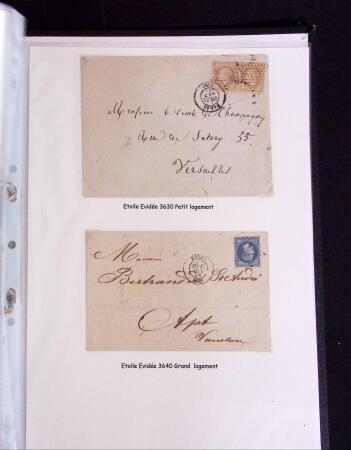 Monsieur le Comte Champagny
rue de Satory 55
Versailles
Etoile Evidée 3630 Petit logement
Monsieur
Bertrand St André
Apt
Vaucluse
Etoile Evidée 3640 Grand logement